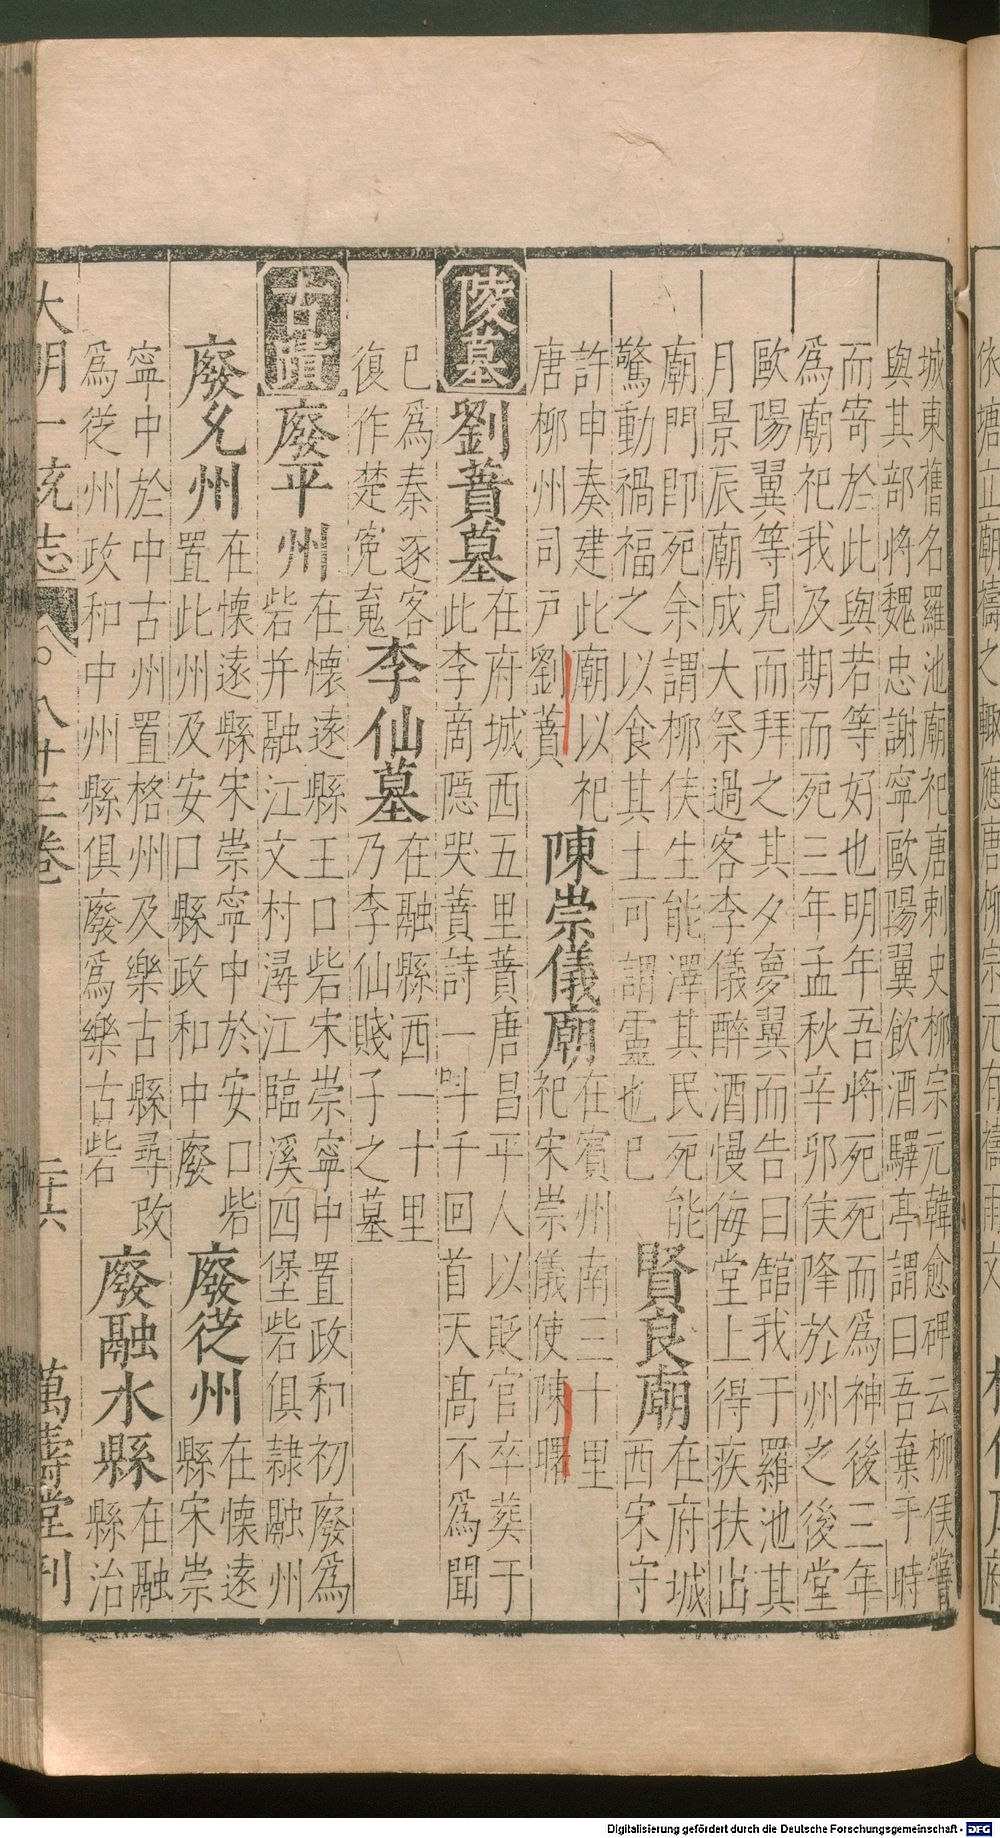 城東舊名羅池廟祀唐刺史柳宗元韓愈碑云柳侯嘗
與其部將魏忠謝寧歐陽翼飲酒驛亭謂曰吾棄于時
而寄於此與若等好也明年吾將死死而爲神後三年
爲廟祀我及期而死三年孟秋辛卯侯降於州之後堂
歐陽翼等見而拜之其夕夢翼而告曰舘我于羅池其
月景辰廟成大祭過客李儀醉酒慢侮堂上得疾扶出
廟門卽死余謂柳侯生能澤其民死能
驚動禍福之以食其土可謂靈也已
賢良廟
在府城
西宋守
許申奏建此廟以祀
唐柳州司戸劉蕡
陳崇儀廟
在賓州南三十里
祀宋崇儀使陳曙
陵墓
劉蕡墓
在府城西五里蕡唐昌平人以貶官卒葬于
此李商隠哭蕡詩一呌千回首天髙不爲聞
已爲秦逐客
復作楚寃䰟
李仙墓
在融縣西一十里
乃李仙賤子之墓
古蹟
廢平州
在懷遠縣王口砦宋崇寧中置政和初廢爲
砦并融江文村潯江臨溪四堡砦俱隷融州
廢允州
在懷遠縣宋崇寧中於安口砦
置此州及安口縣政和中廢
廢從州
在懷遠
縣宋崇
寧中於中古州置格州及樂古縣尋改
爲從州政和中州縣俱廢爲樂古砦
廢融水縣
在融
縣治
大明一統志
八十三卷
二十六
萬壽堂刊
依塘立廟禱之輙應唐柳宗元有禱雨文
Digitalisierung gefördert durch die Deutsche Forschungsgemeinschaft - DFG